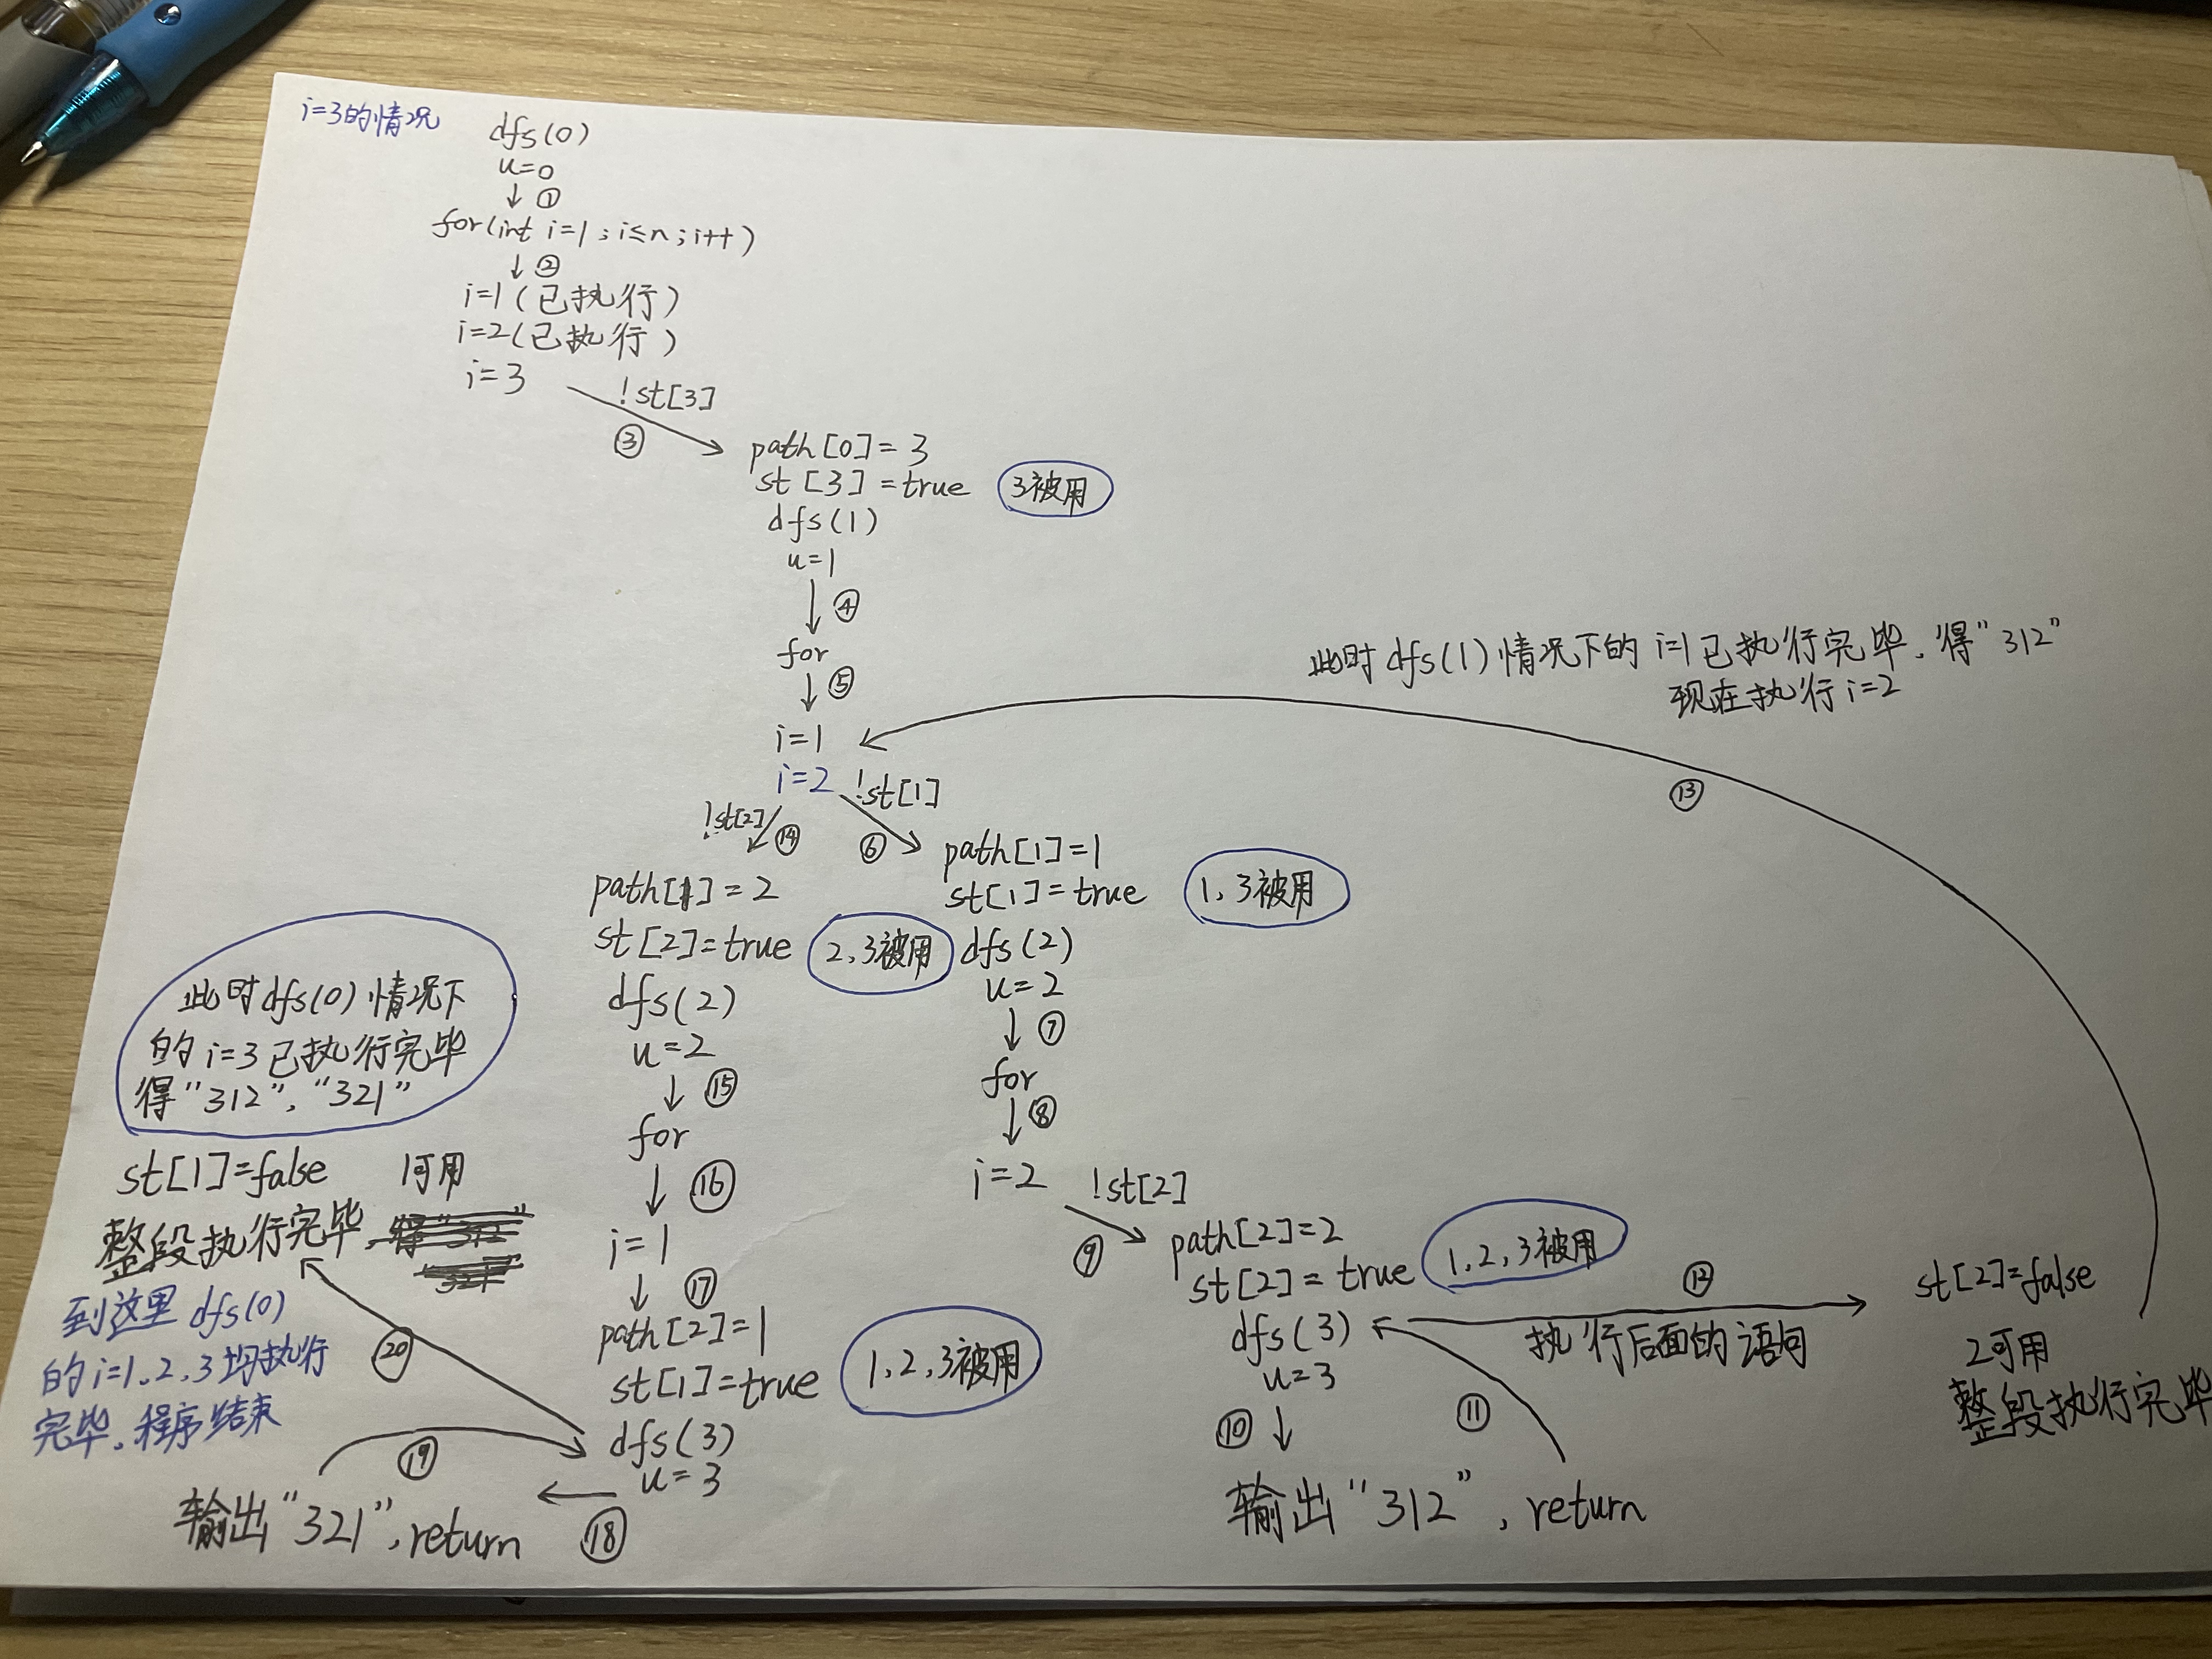 i=3的情况
dfs(0)
u=0
↓ ①
for(int i=1;i≤n;i++)
↓ ②
i=1(已执行)
i=2(已执行)
i=3
!st[3]
③
path[0]=3
st[3]=true
3被用
dfs(1)
u=1
↓ ④
for
↓ ⑤
i=1
i=2
此时dfs(1)情况下的i=1已执行完毕,得"312"
现在执行i=2
⑬
!st[1]
⑥
path[1]=1
st[1]=true
1,3被用
dfs(2)
u=2
↓ ⑦
for
↓ ⑧
i=2
!st[2]
⑨
path[2]=2
st[2]=true
1,2,3被用
dfs(3)
u=3
⑩ ↓
输出"312",return
⑪
⑫
执行后面的语句
st[2]=false
2可用
整段执行完毕
!st[2]
⑭
path[1]=2
st[2]=true
2,3被用
dfs(2)
u=2
↓ ⑮
for
↓ ⑯
i=1
↓ ⑰
path[2]=1
st[1]=true
1,2,3被用
dfs(3)
u=3
← ⑱
输出"321",return
⑲
⑳
st[1]=false 1可用
整段执行完毕,
此时dfs(0)情况下
的i=3已执行完毕
得"312"、"321"
到这里dfs(0)
的i=1、2、3均执行
完毕,程序结束